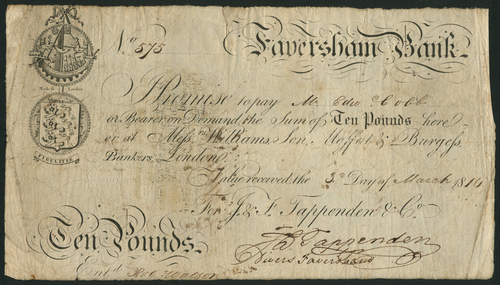 No 575 Faversham Bank
I Promise to pay Mr Edw Cobb
or Bearer, on Demand the Sum of Ten Pounds here
or at Messrs Williams, Son, Moffat & Burgess,
Bankers London
Value received the 3d Day of March 1814
For J. & F. Tappenden & Co
Ten Pounds.
Tappenden
Entd Watson